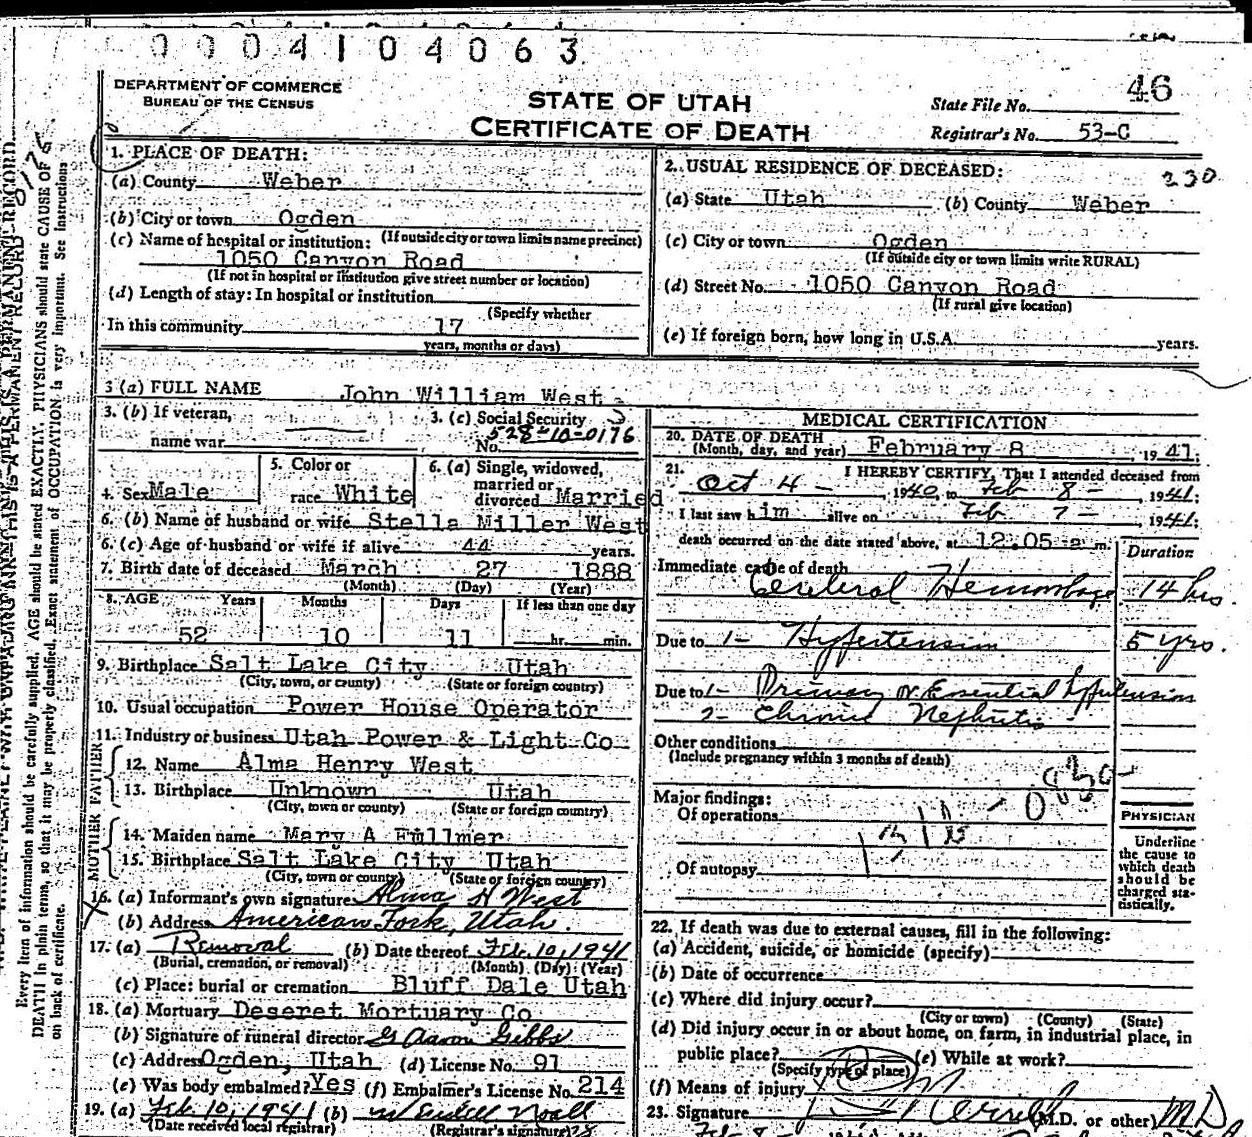 0004104063
DEPARTMENT OF COMMERCE
BUREAU OF THE CENSUS
STATE OF UTAH
CERTIFICATE OF DEATH
State File No. 46
Registrar's No. 53-C
1. PLACE OF DEATH:
(a) County Weber
(b) City or town Ogden
(If outside city or town limits name precinct)
(c) Name of hospital or institution:
1050 Canyon Road
(If not in hospital or institution give street number or location)
(d) Length of stay: In hospital or institution
(Specify whether
In this community 17
years, months or days)
2. USUAL RESIDENCE OF DECEASED:
230
(a) State Utah (b) County Weber
(c) City or town Ogden
(If outside city or town limits write RURAL)
(d) Street No. 1050 Canyon Road
(If rural give location)
(e) If foreign born, how long in U.S.A. years.
3 (a) FULL NAME John William West
3. (b) If veteran,
name war
3. (c) Social Security
No. 528-10-0176
4. Sex Male
5. Color or
race White
6. (a) Single, widowed,
married or
divorced Married
6. (b) Name of husband or wife Stella Miller West
6. (c) Age of husband or wife if alive 44 years.
7. Birth date of deceased March 27 1888
(Month) (Day) (Year)
8. AGE Years Months Days If less than one day
52 10 11 hr. min.
9. Birthplace Salt Lake City Utah
(City, town, or county) (State or foreign country)
10. Usual occupation Power House Operator
11. Industry or business Utah Power & Light Co
FATHER
12. Name Alma Henry West
13. Birthplace Unknown Utah
(City, town or county) (State or foreign country)
MOTHER
14. Maiden name Mary A Fullmer
15. Birthplace Salt Lake City Utah
(City, town or county) (State or foreign country)
16. (a) Informant's own signature Alma H West
(b) Address American Fork, Utah.
17. (a) Removal (b) Date thereof Feb. 10, 1941
(Burial, cremation, or removal) (Month) (Day) (Year)
(c) Place: burial or cremation Bluff Dale Utah
18. (a) Mortuary Deseret Mortuary Co
(b) Signature of funeral director G Aaron Gibbs
(c) Address Ogden, Utah (d) License No. 91
(e) Was body embalmed? Yes (f) Embalmer's License No. 214
19. (a) Feb 10, 1941 (b) Wendell Noall
(Date received local registrar) (Registrar's signature)
MEDICAL CERTIFICATION
20. DATE OF DEATH
(Month, day, and year) February 8 , 1941;
21. I HEREBY CERTIFY, That I attended deceased from
Oct 4 - , 1940, to Feb 8 - , 1941;
I last saw him alive on Feb 7 - , 1941;
death occurred on the date stated above, at 12.05 a m.
Duration
Immediate cause of death
Cerebral Hemorrhage 14 hrs.
Due to 1- Hypertension 5 yrs.
Due to 1- Primary or Essential Hypertension
2- Chronic Nephritis -
Other conditions
(Include pregnancy within 3 months of death)
Major findings:
Of operations
Of autopsy
PHYSICIAN
Underline
the cause to
which death
should be
charged sta-
tistically.
22. If death was due to external causes, fill in the following:
(a) Accident, suicide, or homicide (specify)
(b) Date of occurrence
(c) Where did injury occur?
(City or town) (County) (State)
(d) Did injury occur in or about home, on farm, in industrial place, in
public place? (e) While at work?
(Specify type of place)
(f) Means of injury
23. Signature (M.D. or other) MD
Every item of information should be carefully supplied. AGE should be stated EXACTLY. PHYSICIANS should state CAUSE OF
DEATH in plain terms, so that it may be properly classified. Exact statement of OCCUPATION is very important. See Instructions
on back of certificate.